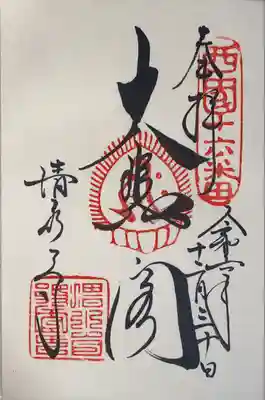 西国十六番
奉拝
令和 年十 月三十日
大悲閣
清水寺